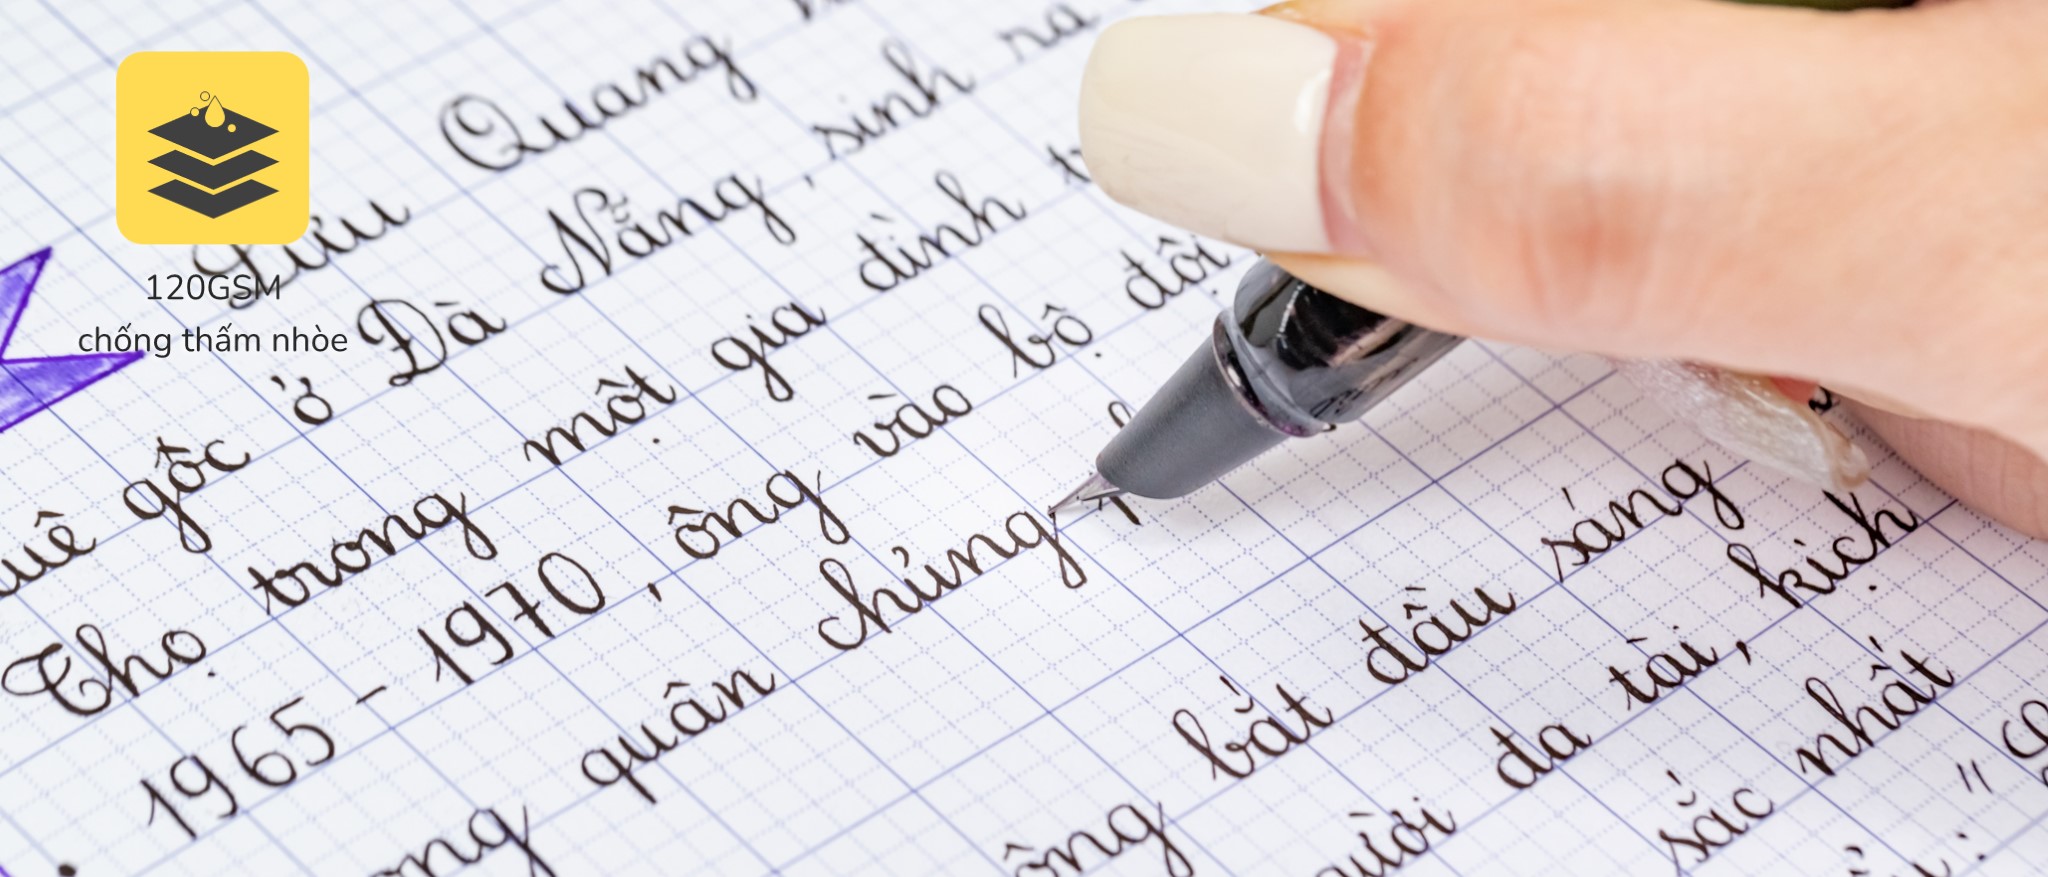 120GSM
chống thấm nhòe
Lưu Quang
uê gốc ở Đà Nẵng, sinh ra
Thọ trong một gia đình
1965 - 1970, ông vào bộ đội
ong quân chủng
ông bắt đầu sáng
ười đa tài, kịch
sắc nhất